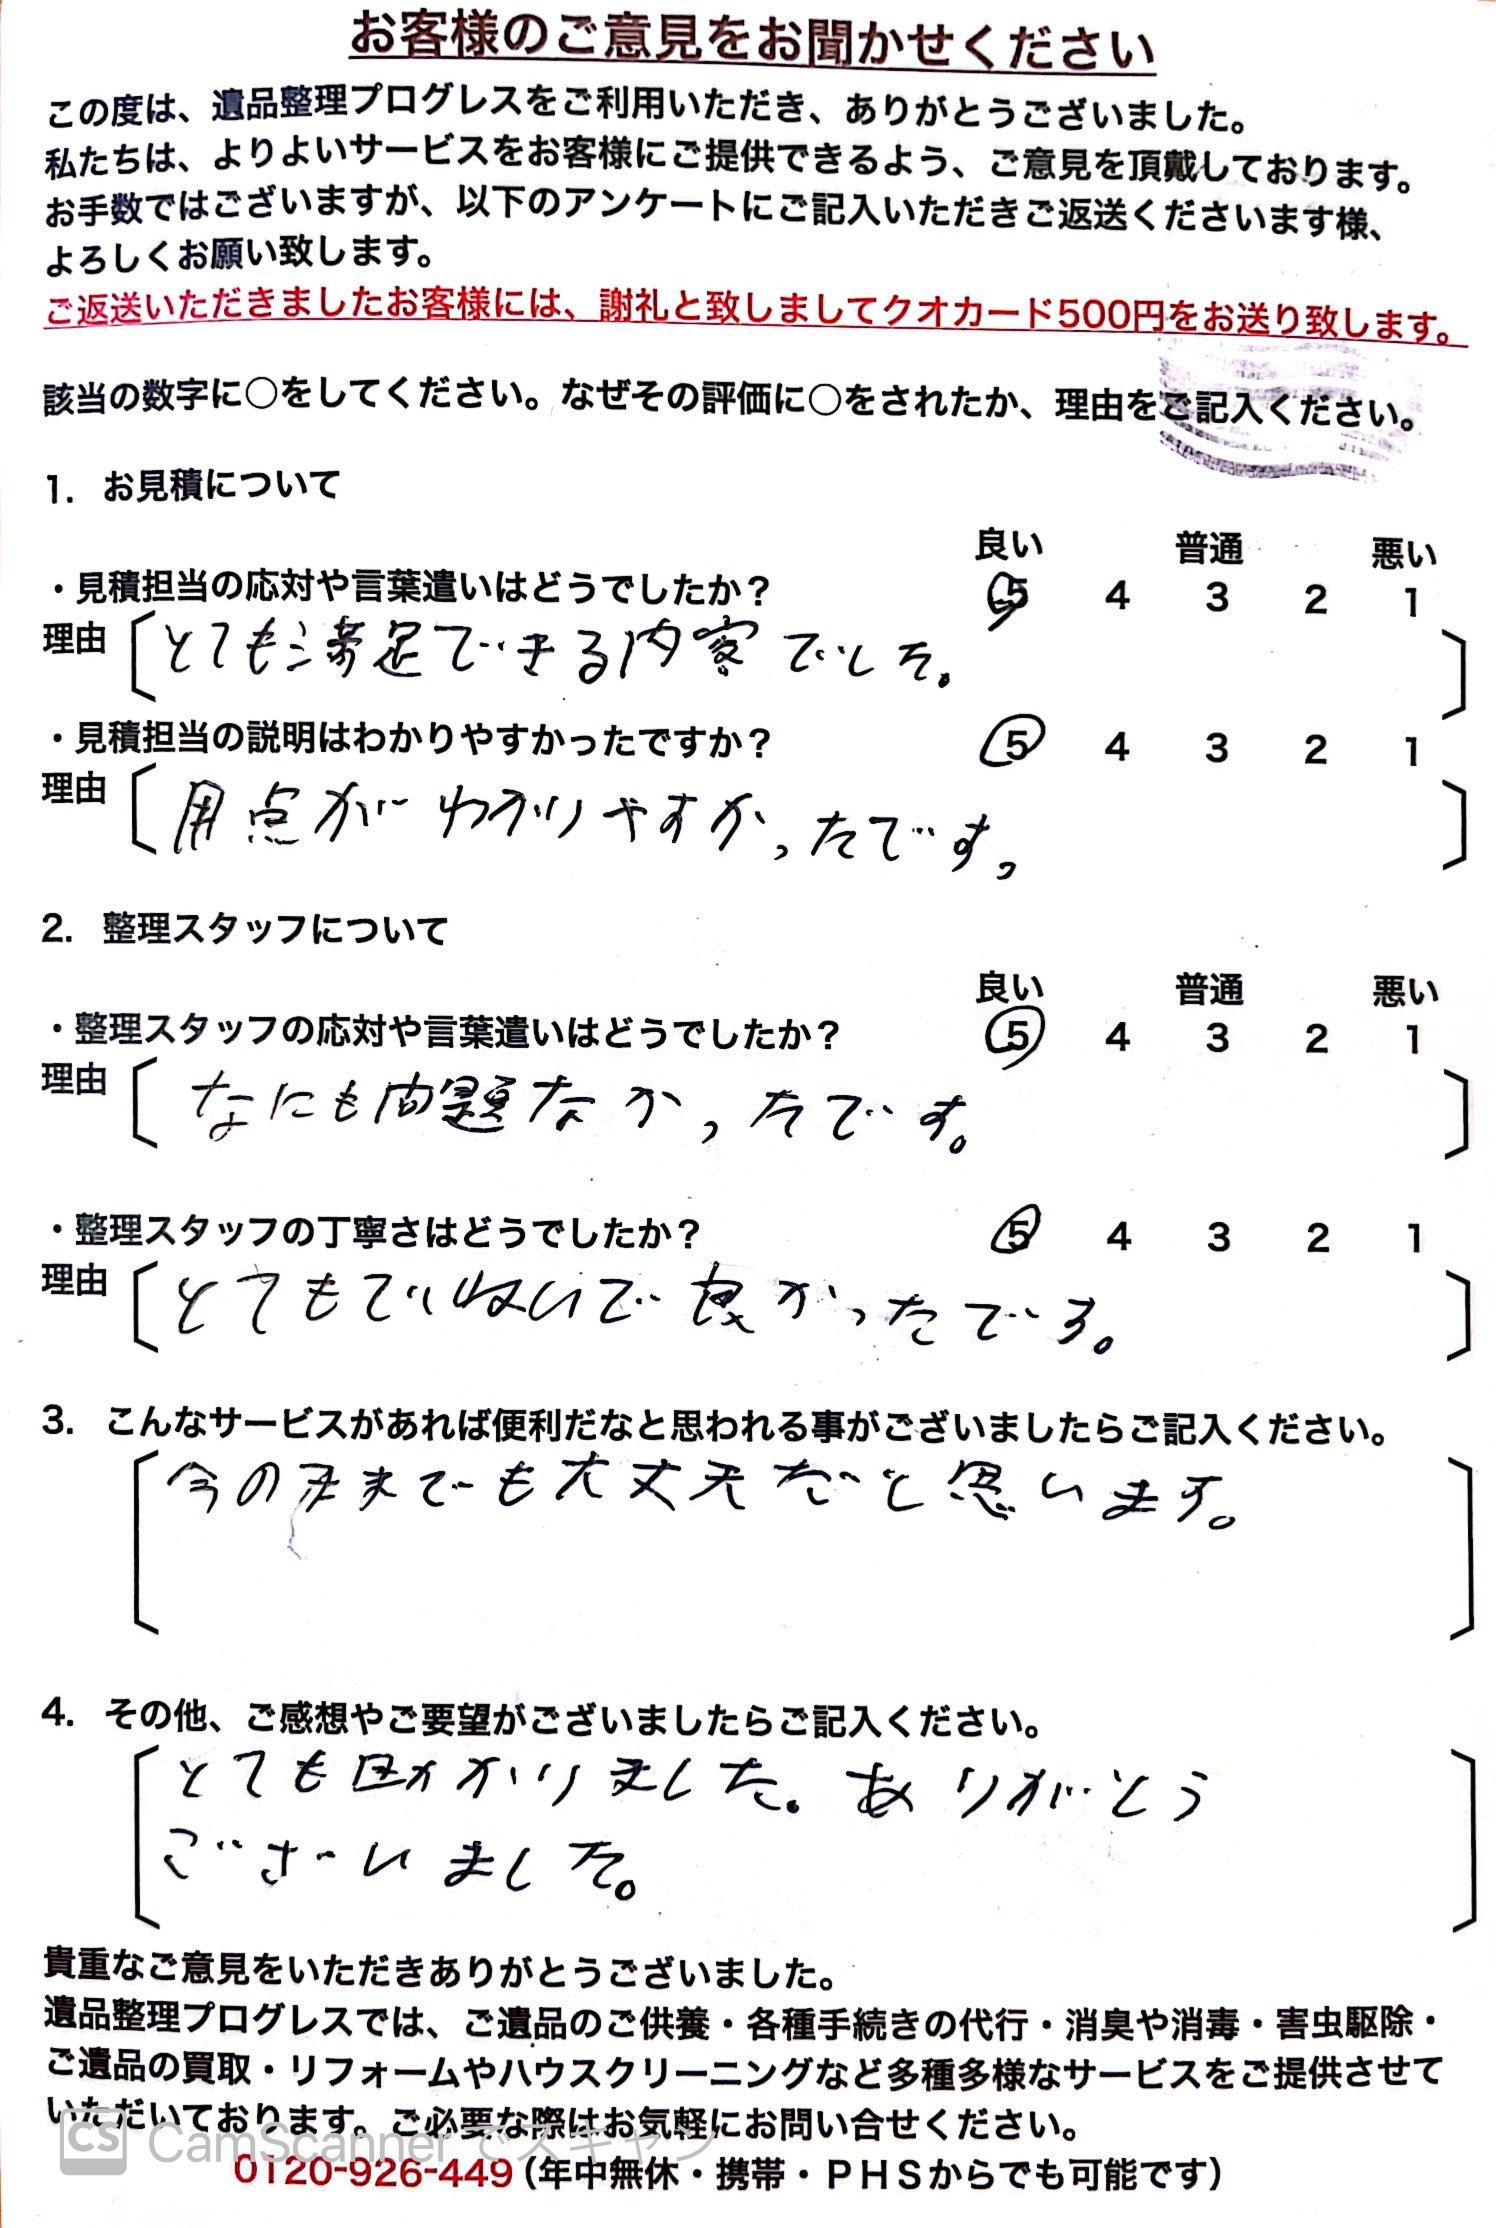 お客様のご意見をお聞かせください
この度は、遺品整理プログレスをご利用いただき、ありがとうございました。
私たちは、よりよいサービスをお客様にご提供できるよう、ご意見を頂戴しております。
お手数ではございますが、以下のアンケートにご記入いただきご返送くださいます様、
よろしくお願い致します。
ご返送いただきましたお客様には、謝礼と致しましてクオカード500円をお送り致します。
該当の数字に○をしてください。なぜその評価に○をされたか、理由をご記入ください。
1. お見積について
良い 普通 悪い
・見積担当の応対や言葉遣いはどうでしたか？ 5 4 3 2 1
理由 とても満足できる内容でした。
・見積担当の説明はわかりやすかったですか？ 5 4 3 2 1
理由 用点がわかりやすかったです。
2. 整理スタッフについて
良い 普通 悪い
・整理スタッフの応対や言葉遣いはどうでしたか？ 5 4 3 2 1
理由 なにも問題なかったです。
・整理スタッフの丁寧さはどうでしたか？ 5 4 3 2 1
理由 とてもていねいで良かったです。
3. こんなサービスがあれば便利だなと思われる事がございましたらご記入ください。
今のままでも大丈夫だと思います。
4. その他、ご感想やご要望がございましたらご記入ください。
とても助かりました。ありがとう
ございました。
貴重なご意見をいただきありがとうございました。
遺品整理プログレスでは、ご遺品のご供養・各種手続きの代行・消臭や消毒・害虫駆除・
ご遺品の買取・リフォームやハウスクリーニングなど多種多様なサービスをご提供させて
いただいております。ご必要な際はお気軽にお問い合せください。
CS CamScanner でスキャン
0120-926-449（年中無休・携帯・ＰＨＳからでも可能です）